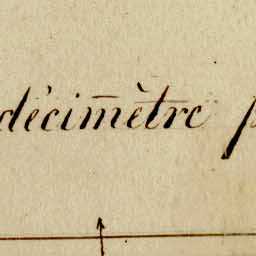 décimètre p